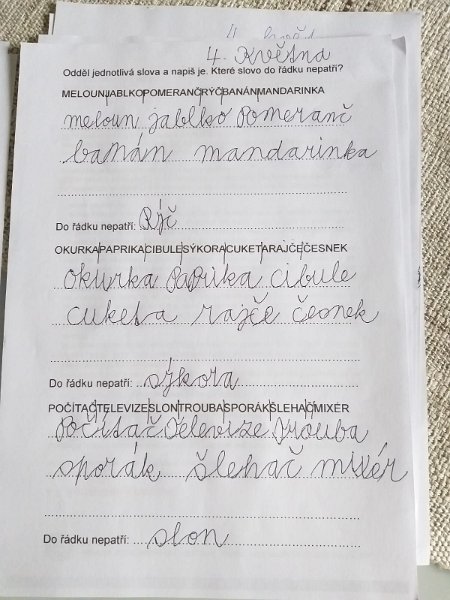 4. Května
Odděl jednotlivá slova a napiš je. Které slovo do řádku nepatří?
MELOUNJABLKOPOMERANČRÝČBANÁNMANDARINKA
meloun jablko Pomeranč
banán mandarinka
Do řádku nepatří: Rýč
OKURKAPAPRIKACIBULESÝKORACUKETARAJČEČESNEK
okurka Paprika cibule
cuketa rajče česnek
Do řádku nepatří: sýkora
POČÍTAČTELEVIZESLONTROUBASPORÁKŠLEHAČMIXÉR
Počítač Televize Trouba
sporák šlehač mixér
Do řádku nepatří: slon